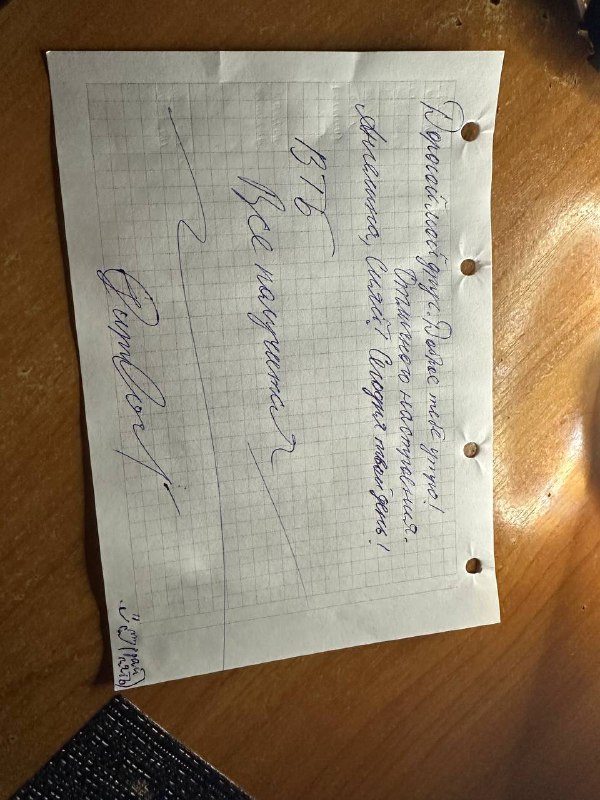 Дорогой мой друг. Доброе тебе утро!
Отличного настроения.
Ангелина, Сияй! Сегодня твой день!
ВТБ
Все получится